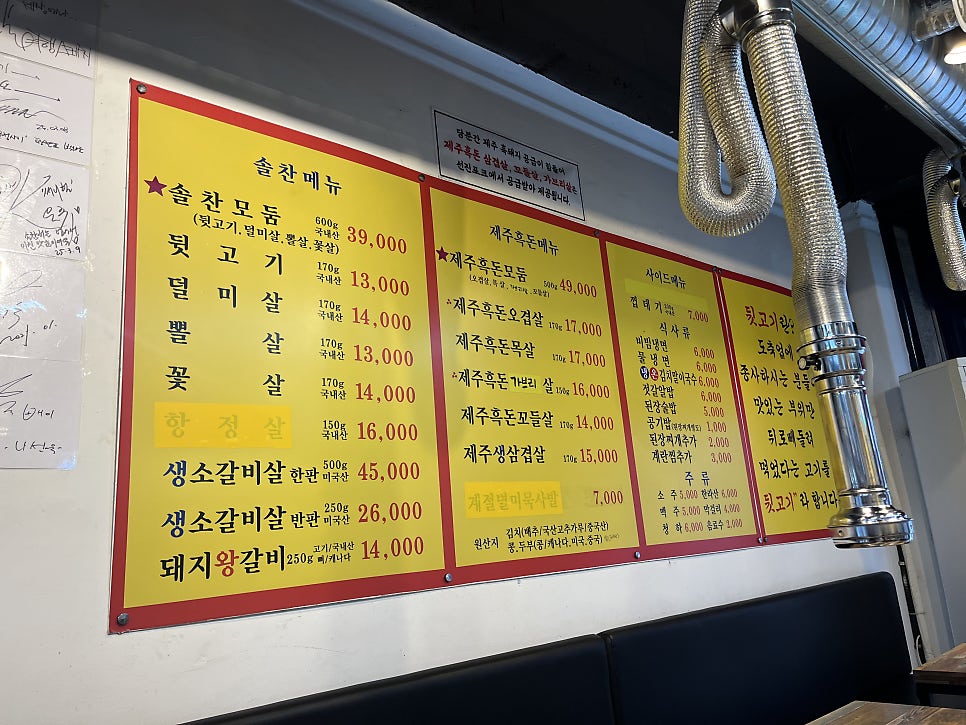 당분간 제주 흑돼지 공급이 힘들어
제주흑돈 삼겹살, 꼬들살, 가브리살은
선진포크에서 공급받아 제공됩니다.
솔찬메뉴
★솔찬모둠 600g 국내산 39,000
(뒷고기,덜미살,뽈살,꽃살)
뒷고기 170g 국내산 13,000
덜미살 170g 국내산 14,000
뽈살 170g 국내산 13,000
꽃살 170g 국내산 14,000
항정살 150g 국내산 16,000
생소갈비살 한판 500g 미국산 45,000
생소갈비살 반판 250g 미국산 26,000
돼지왕갈비 250g 고기/국내산 뼈/캐나다 14,000
제주흑돈메뉴
★제주흑돈모둠 500g 49,000
제주흑돈오겹살 170g 17,000
제주흑돈목살 170g 17,000
제주흑돈가브리살 150g 16,000
제주흑돈꼬들살 170g 14,000
제주생삼겹살 170g 15,000
계절별미목사발 7,000
원산지 김치(배추/국산고추가루/중국산)
콩,두부(콩/캐나다,미국,중국)
사이드메뉴
껍데기 7,000
식사류
비빔냉면 6,000
물냉면 6,000
김치말이국수 6,000
젓갈알밥 6,000
된장술밥 5,000
공기밥(된장찌개별도) 1,000
된장찌개추가 2,000
계란찜추가 3,000
주류
소주 5,000 한라산 6,000
맥주 5,000 막걸리 4,000
청하 6,000 음료수 2,000
뒷고기란
도축업에
종사하시는 분들
맛있는 부위만
뒤로빼돌려
먹었다는 고기를
뒷고기"라 합니다